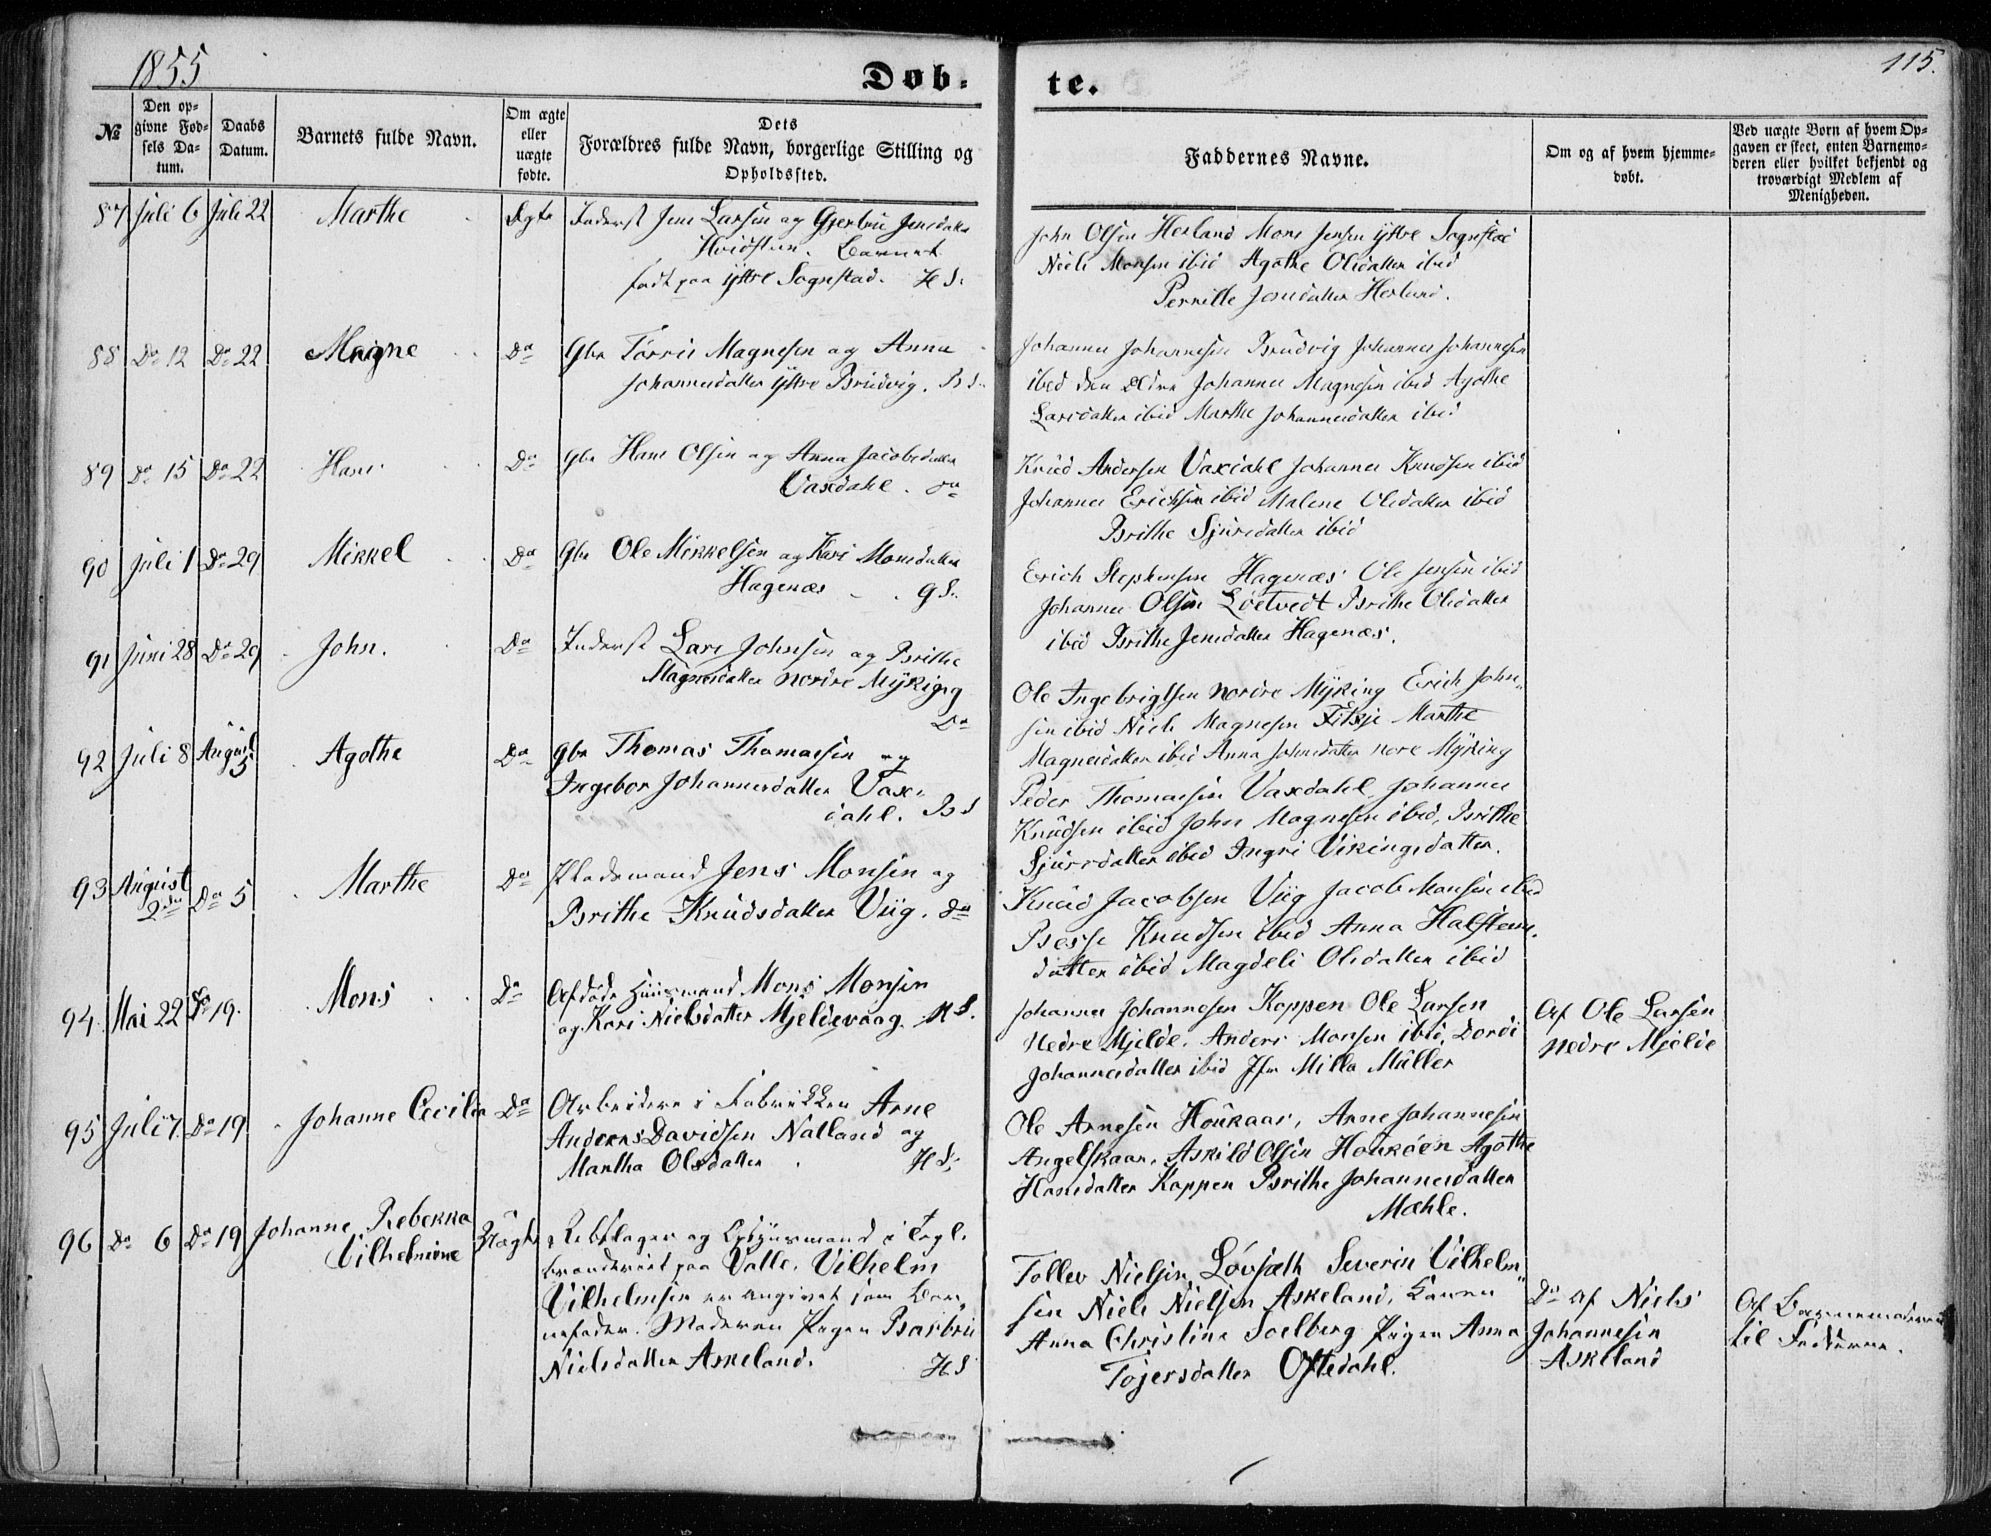 1855
115.
Døb-
te.
№
Den op-
givne Fød-
sels Da-
tum.
Daabs
Datum.
Barnets fulde Navn.
Om ægte
eller
uægte
fødte.
Dets
Forældres fulde Navn, borgerlige Stilling og
Opholdssted.
Faddernes Navne.
Om og af hvem hjemme-
døbt.
Ved uægte Børn af hvem Op-
gaven er skeet, enten Barnemo-
deren eller hvilket bekjendt og
troværdigt Medlem af
Menigheden.
87 Juli 6 Juli 22 Marthe Ægte Inderst Jens Larsen og Gjertrui Jensdatter
Hvidsteen. Barnet
født paa Yttre Sognstad. H S.
John Olsen Herland Mons Jensen Yttre Sognstad
Niels Monsen ibid Agothe Olsdatter ibid
Pernille Jonsdatter Herland.
88 Do 12 Do 22 Magne Do Gbr Torris Magnesen og Anna
Johannesdatter Yttre Bruvig. B S
Johannes Johannesen Bruvig Johannes Johannesen
ibid den Eldre Johannes Magnesen ibid Agothe
Larsdatter ibid Marthe Johannesdatter ibid
89 Do 15 Do 22 Hans Do Gbr Hans Olsen og Anna Jacobsdatter
Vaxdahl. do
Knud Andersen Vaxdahl Johannes Knudsen ibid
Johannes Erichsen ibid Malene Olsdatter ibid
Brithe Sjursdatter ibid
90 Juli 1 Do 29 Mikkel Do Gbr Ole Mikkelsen og Kari Monsdatter
Hagenæs G S.
Erich Stephensen Hagenæs Ole Jensen ibid
Johannes Olsen Løtvedt Brithe Olsdatter
ibid Brithe Jensdatter Hagenæs.
91 Juni 28 Do 29 John. Do Inderst Lars Johnsen og Brithe
Magnesdatter nordre Myking
Do
Ole Ingebrigtsen nordre Myking Erich John-
sen ibid Niels Magnesen Fitsje Marthe
Magnesdatter ibid Anna Johnsdatter nore Myking
92 Juli 8 August 5 Agothe Do Gbr Thomas Thomassen og
Ingebor Johannesdatter Vax-
dahl. B S
Peder Thomassen Vaxdahl, Johannes
Knudsen ibid John Magnesen ibid, Brithe
Sjursdatter ibid Ingri Vikingsdatter.
93 August 2den Do 5 Marthe Do Pladsmand Jens Monsen og
Brithe Knudsdatter Viig. do
Knud Jacobsen Viig Jacob Monsen ibid
Besse Knudsen ibid Anna Halstens-
datter ibid Magdeli Olsdatter ibid
94. Mai 22 Do 19. Mons Do Afdøde Huusmand Mons Monsen
og Kari Nielsdatter Mjeldevaag. H S.
Johannes Johannesen Koppen Ole Larsen
Nedre Mjelde. Anders Monsen ibid, Dordi
Johannesdatter ibid Jfr Milla Müller
Af Ole Larsen
nedre Mjelde
95 Juli 7. Do 19 Johanne Cecilia Do Arbeidere i Fabrikken Arne
Anders Davidsen Natland og
Martha Olsdatter. H S.
Ole Arnesen Houkaas, Arne Johannesen
Angelskaar, Askild Olsen Houkøen Agothe
Hansdatter Koppen Brithe Johannesdatter
Mæhle.
96 Do 6 Do 19 Johanne Rebekka
Vilhelmine Uægte Rebslager og Opsynsmand i Tegl-
brænderiet paa Valle, Vilhelm
Vilhelmsen er angivet som Bar-
nefader. Moderen Pigen Barbru
Nielsdatter Askeland. H S
Tollev Nielsen Løvsæth Severin Vilhelm-
sen Niels Nielsen Askeland, Konen
Anna Christine Soelberg Pigen Anna
Tøjersdatter Oftedahl.
Do af Niels
Johannesen
Askeland
Af Barnemoderen
til Fadderne.